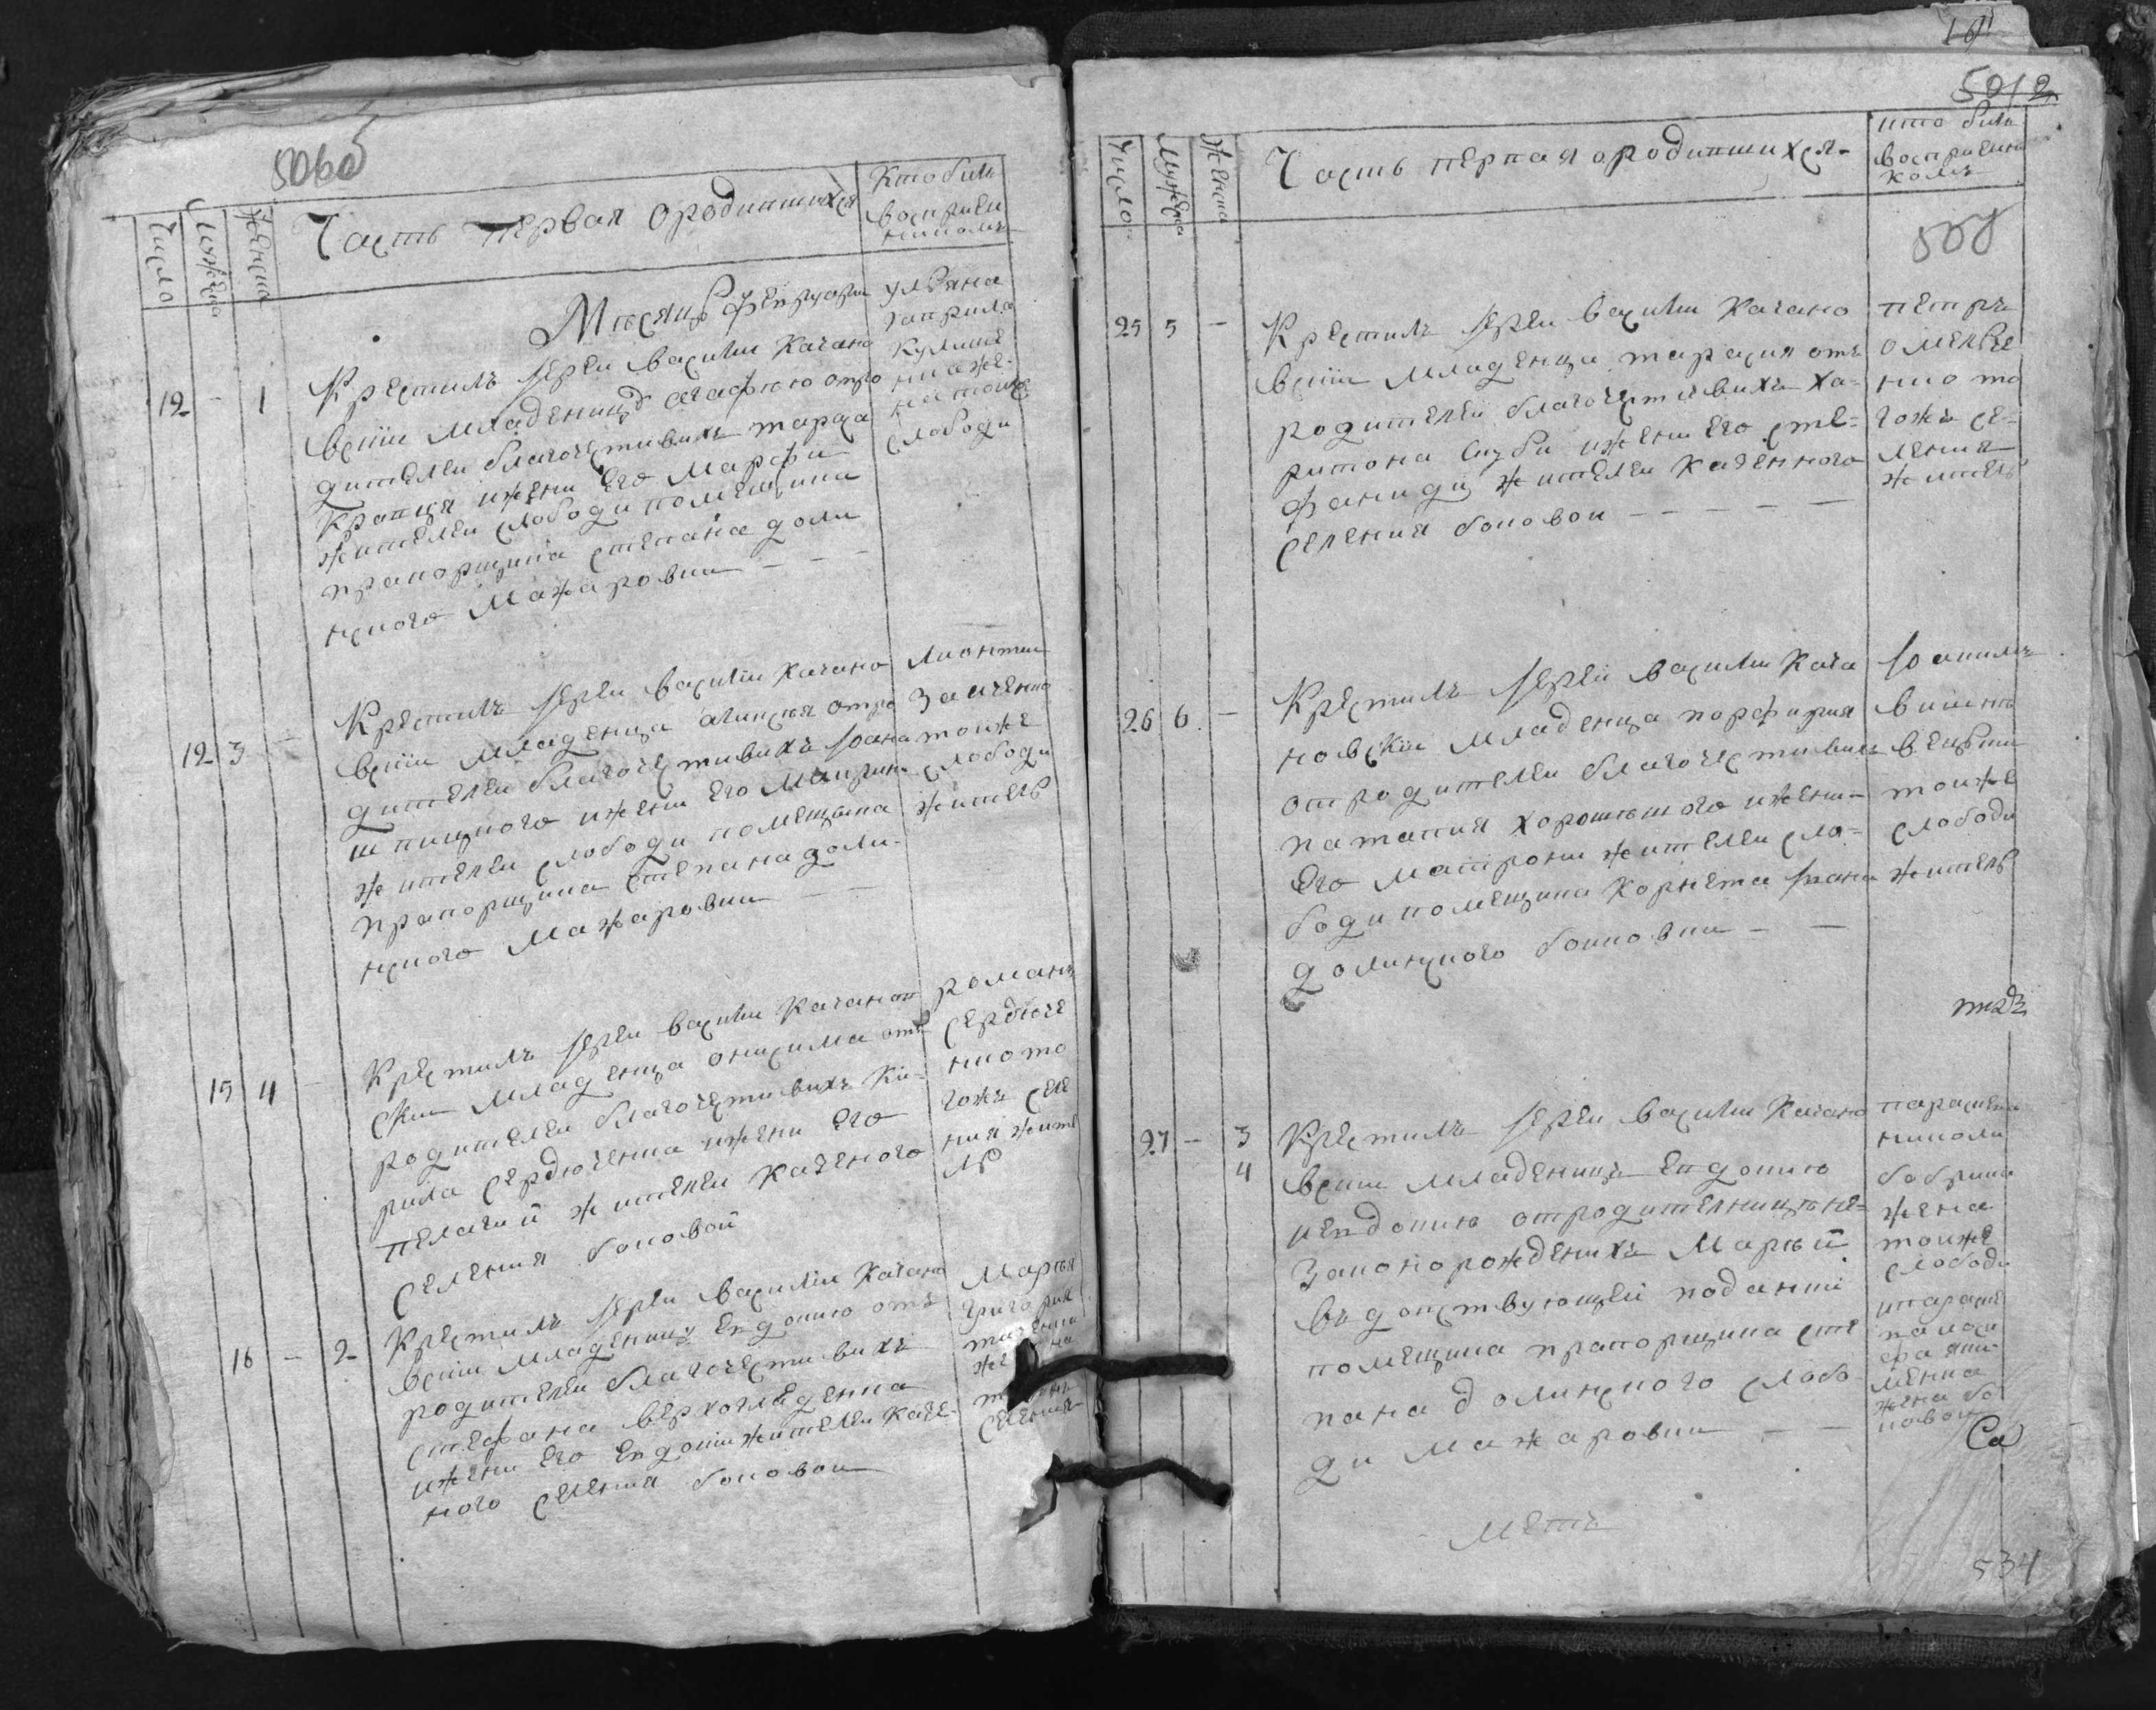 506об
Число
Мужеска
Женска
Часть первая ородившихся
Кто билъ
восприем
никомъ
Месяцъ февруари
12 - 1
Крестилъ іерей василии Качано
вскіи младеницу агафию отро
дителеи благочестивихъ тараса
кравця ижени его Марфи
жителеи слободи помещика
прапорщика степана доли
нского Мажаровки - -
ульяна
гаврила
жена тоиже
слободи
12 3 -
Крестилъ іерей василіи Качано
вскіи младенца аликсея отро
дителеи благочестивихъ іоана
ижени его
жителеи слободи помещика
прапорщика степана доли-
нского Мажаровки - -
тоиже
слободи
житель
15 4 -
Крестилъ іерей василии Качанов
ски младенца онисима отъ
родителеи благочестивихъ ки-
рила сердюченка ижени его
пелагии жителеи казеного
селения боковой
романъ
сердюче
нко то
гожъ селе
ния жите
ль
16 - 2
Крестилъ іерей василіи Качано
вскіи младеницу евдокию отъ
родителеи благочестивихъ
стефана верхогляденка
ижени его евдокіи жителеи казе-
ного селения боковои
Марья
григория
жена
селения
1012
507
Число
Мужеска
Женска
Часть первая ородившихся
кто билъ
восприемни
комъ
508
25 5 -
Крестилъ іерей василіи Качано
вскіи младенца тарасия отъ
родителеи благочестивихъ ха-
ритона ижени его сте-
фаниди жителеи казенного
селения боковои - - - - -
петръ
омельче
нко то
гожъ се-
ления
житель
26 6 -
Крестилъ іерей василии Кача
новскіи младенца порфирия
отродителеи благочестивихъ
потапия хорошъшого ижени
его матрони жителеи сло-
боди помещика корнета івана
долинского боковки - -
іоакимъ
тоиже
слободи
житель
27 - 3
4
Крестилъ іерей василіи Качано
вскии младеницъ евдокию
иевдокию отродителници не-
законорожденихъ Марьи
вдовствующей поданиі
помещика прапорщика сте
пана долинского слобо
ди мажаровки - -
параскеви
николи
жена
тоиже
слободи
жена бо
ковои
534